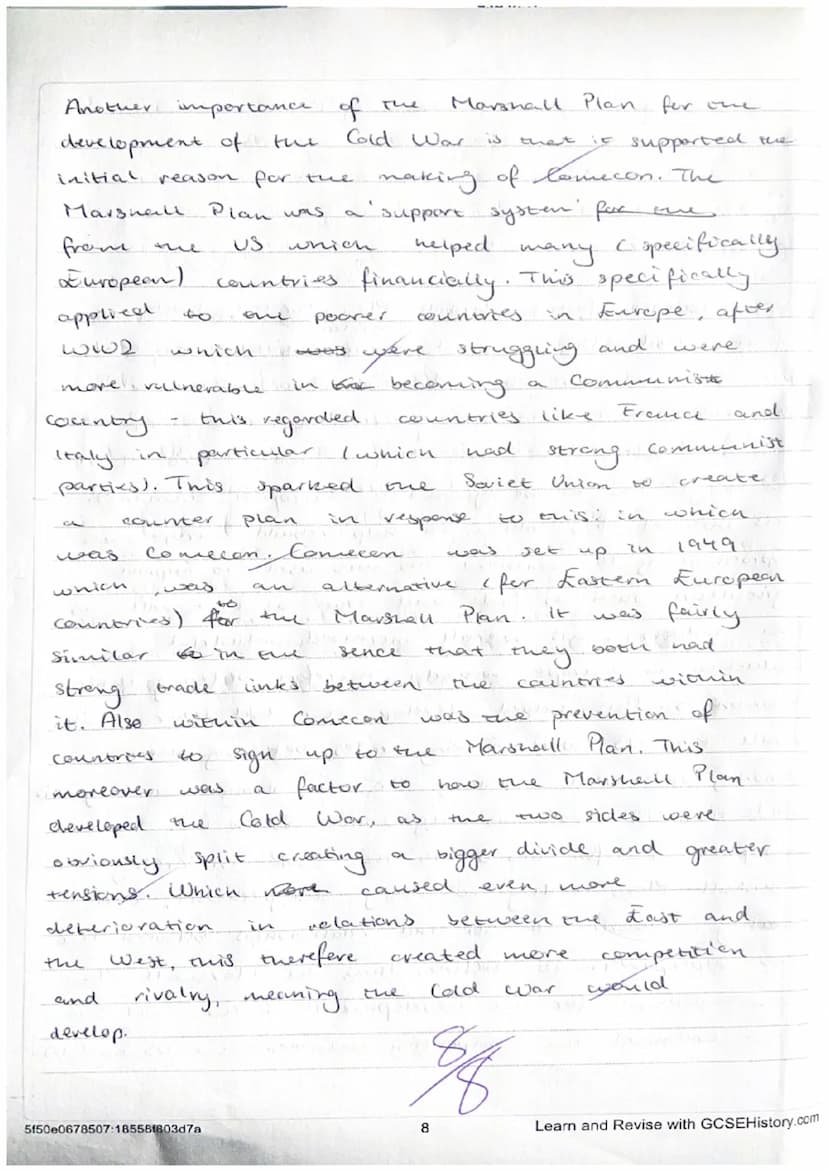 Another importance of the Marshall Plan for the
development of the Cold War is that it supported the
initial reason for the making of Comecon. The
Marshall Plan was a 'support system' for the
from the US which helped many (specifically
European) countries financially. This specifically
applied to the poorer countries in Europe, after
WW2 which was were struggling and were
more vulnerable in becoming a Communist
country - this regarded countries like France and
Italy in particular (which had strong communist
parties). This sparked the Soviet Union to create
a counter plan in response to this: in which
was Comecon. Comecon was set up in 1949
which was an alternative (for Eastern European
countries) for to the Marshall Plan. it was fairly
similar to in the sence that they both had
strong trade links between the countries within
it. Also within Comecon was the prevention of
countries to sign up to the Marshall Plan. This
moreover was a factor to how the Marshall Plan
developed the Cold War, as the two sides were
obviously split creating a bigger divide and greater
tensions. Which more caused even more
deterioration in relations between the East and
the West, this therefore created more competition
and rivalry, meaning the Cold War would
develop.
8/8
8
Learn and Revise with GCSEHistory.com